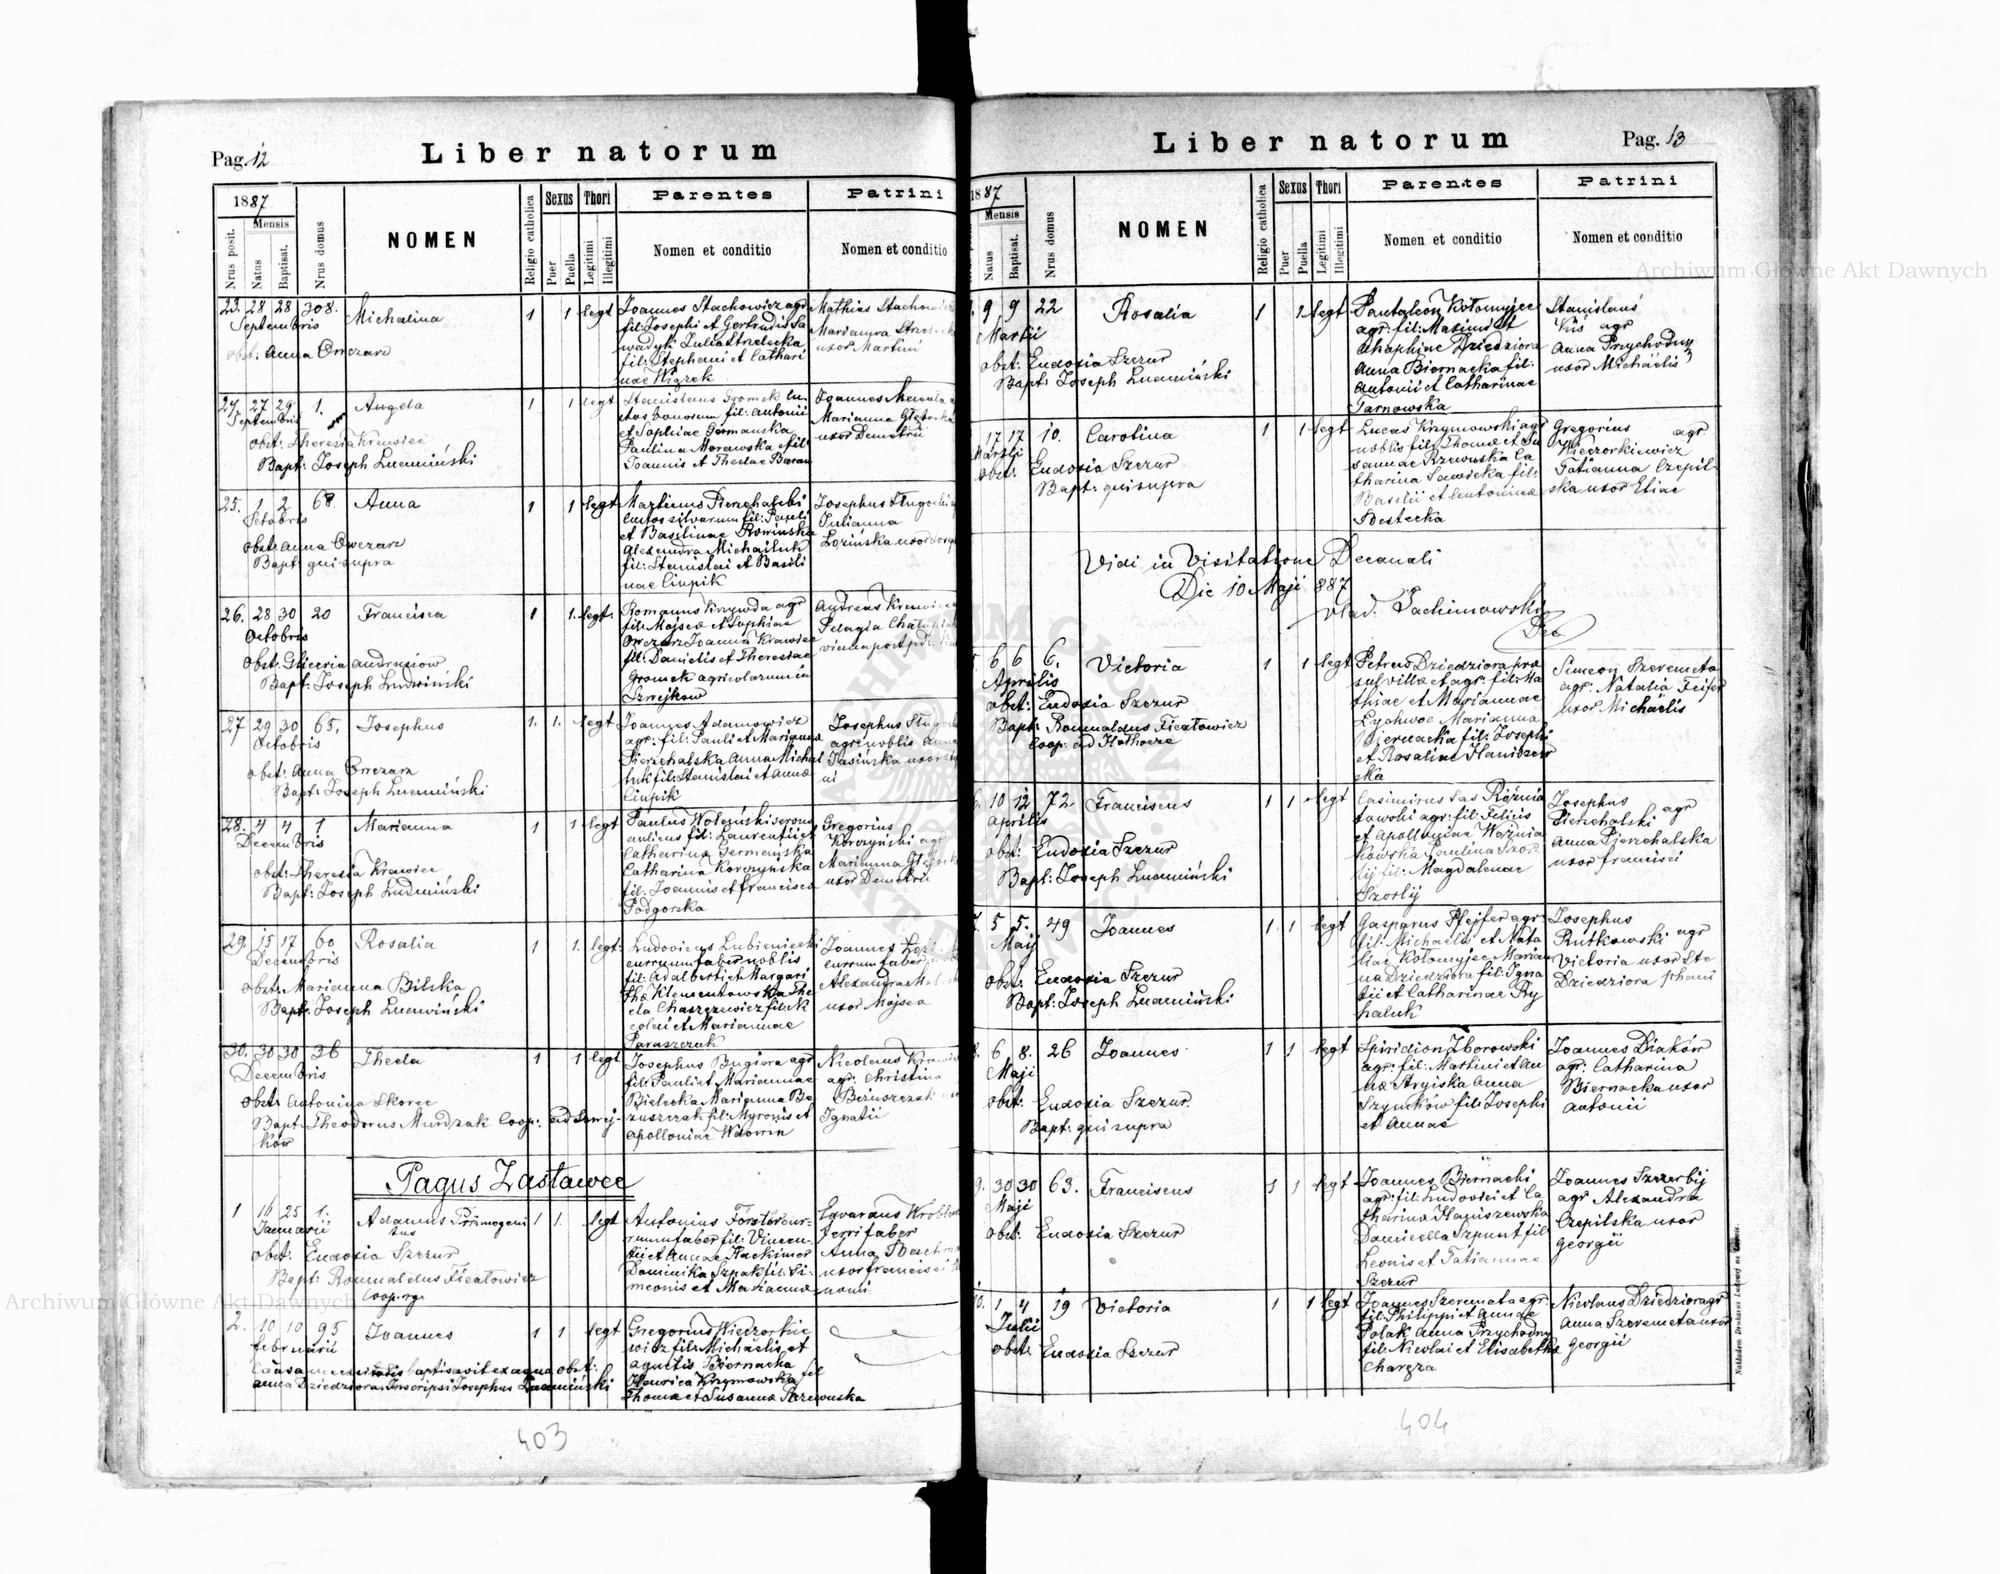 Pag. 12
Liber natorum
1887
Mensis
Nrus posit.
Natus
Baptisat.
Nrus domus
NOMEN
Religio catholica
Sexus
Puer
Puella
Thori
Legitimi
Illegitimi
Parentes
Nomen et conditio
Patrini
Nomen et conditio
23. 28 28 308. Michalina 1 1 legt
Septembris
obst: Anna Owczarz
Joannes Stachowicz agr
fil: Josephi et Gertrudis Sa
wadyk Julia Strelecka
fil: Stephani et Cathari
nae Wiązek
Mathias
Marianna
uxor Martini
24. 27 29 1. Angela 1 1 legt
Septembris
obst: Theresia Krawiec
Bapt: Joseph Ludmiński
Stanislaus Gromek
bonorum fil: Antonii
et Sophiae Germanska
Paulina Morawska fil:
Joannis et Theclae Baran
Joannes
Marianna
uxor Demetrii
25. 1 2 68. Anna 1 1 legt
Octobris
obst: Anna Owczarz
Bapt: qui supra
Martinus Pierzchalski
custos silvarum fil: Pauli
et Basilinae Rowinska
Alexandra Michaluk
fil: Stanislai et Basili
nae Ciupik
Josephus
Julianna
Łozińska uxor
26. 28 30 20 Francisca 1 1. legt.
Octobris
obst: Gliceria Andrusiow
Bapt: Joseph Ludmiński
Romanus Krzywda agr
fil: Mojsea et Sophiae
Owczarz Joanna Krawiec
fil: Danielis et Theresiae
Gromek agricolarum in
Szwejkow
Andreas Krawiec
Pelagia
27 29 30 65. Josephus 1. 1. legt
Octobris
obst: Anna Owczarz
Bapt: Joseph Ludmiński
Joannes Adamowicz
agr: fil: Pauli et Marianna
Pierzchalska Anna Michal
luk fil: Stanislai et Annae
Ciupik
Josephus
agr: nobilis Anna
Jasińska uxor
28. 4 4 1 Marianna 1 1 legt
Decembris
obst: Theresia Krawiec
Bapt: Joseph Ludmiński
Paulus Wołezński servus
aulicus fil: Laurentii et
Catharina Germańska
Catharina Korczyńska
fil: Joannis et Francisca
Podgorska
Gregorius
Korczyński agr
Marianna
uxor Demetrii
29. 15 17 60 Rosalia 1 1. legt.
Decembris
obst: Marianna Bilska
Bapt: Joseph Ludmiński
Ludovicus Lubieniecki
currum faber nobilis
fil: Adalberti et Margari
tha Klementowska The
cla Chaszczewicz fil: Ni
colai et Mariannae
Paraszczuk
Joannes
currum faber
Alexandra
uxor Mojsea
30. 30 30 36 Thecla 1 1 legt
Decembris
obst: Antonina Skorec
Bapt: Theodorus Murdzak Coop: ad Szwej-
ków
Josephus Bugiera agr
fil: Pauli et Mariannae
Bielecka Marianna Be
zuszczak fil: Myronis et
Apolloniae Wdowin
Nicolaus
agr: Christina
Bezuszczak
Ignatii
Pagus Zastawce
1 16 25 1. Adamus Primogeni 1 1. legt
Januarii tus
obst: Eudoxia Szczur
Bapt: Romualdus Ficałowicz
Coop. rg.
Antonius Forster cur-
rum faber fil: Vincen-
tii et Annae Hackimer
Dominika Szpak fil: Si-
meonis et Marianna
Eduardus
ferri faber
Anna
uxor Francisci
2. 10 10 95 Joannes 1 1 legt
Februarii
Causa necessitatis baptisavit ex aqua obst:
Anna Dziedziora. Inscripsi Josephus Ludmiński
Gregorius Wieczorkie
wicz fil: Michaelis et
Agnetis Biernacka
Henrica Krzymowska fil
Thomae et Susannae Rzewuska
403
Liber natorum
Pag. 13
1887
Mensis
Natus
Baptisat.
Nrus domus
NOMEN
Religio catholica
Sexus
Puer
Puella
Thori
Legitimi
Illegitimi
Parentes
Nomen et conditio
Patrini
Nomen et conditio
9 9 22 Rosalia 1 1 legt
Martii
obst: Eudoxia Szczur
Bapt: Joseph Ludmiński
Pantaleon Kołomyjec
agr: fil: Maximi et
Ahaphiae Dziedziora
Anna Biernacka fil:
Antonii et Catharinae
Tarnowska
Stanislaus
Kus agr
Anna Przychodny
uxor Michaelis
17 17 10. Carolina 1 1 legt
Martii
obst: Eudoxia Szczur
Bapt: qui supra
Lucas Krzymowski agr
nobilis fil: Thomae et Su
sannae Rzewuska Ca
tharina Sawicka fil:
Basilii et Antoninae
Sosłecka
Gregorius agr
Wieczorkiewicz
Tatianna Czepil-
ska uxor Eliae
Vidi in Visitatione Decanali
Die 10 Maji 887
Vlad. Jachimowski
Dec
6 6 6. Victoria 1 1 legt
Aprilis
obst: Eudoxia Szczur
Bapt: Romualdus Ficałowicz
Coop: ad Hołhocze
Petrus Dziedziora prae
sul villae et agr: fil: Ma
thiae et Mariannae
Lychwoc Marianna
Biernacka fil: Josephi
et Rosaliae Haniszew
ska
Simeon Szeremeta
agr: Natalia Feifer
uxor Michaelis
10 12 72 Franciscus 1 1 legt
Aprilis
obst: Eudoxia Szczur
Bapt: Joseph Ludmiński
Casimirus Sas Różnia
towski agr: fil: Felicis
et Apolloniae Woźnia
kowska Paulina Szor-
lij fil: Magdalenae
Szorlij
Josephus
Pierzchalski agr
Anna Pierzchalska
uxor Francisci
5 5. 49 Joannes 1 1 legt
Maji
obst: Eudoxia Szczur
Bapt: Joseph Ludmiński
Gasparus Pfejfer agr:
fil: Michaelis et Nata
liae Kołomyjec Marian
na Dziedziora fil: Igna
tii et Catharinae Ry
haluk
Josephus
Rutkowski agr
Victoria uxor Ste
Dziedziora phani
6 8. 26 Joannes 1 1 legt
Maji
obst: Eudoxia Szczur
Bapt: qui supra
Spiridion Zborowski
agr: fil: Martini et An
nae Stryjska Anna
Szymków fil: Josephi
et Annae
Joannes Diaków
agr: Catharina
Biernacka uxor
Antonii
9. 30 30 63. Franciscus 1 1 legt
Maji
obst: Eudoxia Szczur
Joannes Biernacki
agr: fil: Ludovici et Ca
tharina Haniszewska
Daniella Szpunt fil:
Leonis et Tatiannae
Szczur
Joannes Szczerbij
agr: Alexandra
Czepilska uxor
Georgii
10. 1 4 19 Victoria 1 1 legt
Julii
obst: Eudoxia Szczur
Joannes Szeremeta agr
fil: Philippi et Annae
Polak Anna Przychodny
fil: Nicolai et Elisabetha
Charęza
Nicolaus Dziedziora gr
Anna Szeremeta uxor
Georgii
Nakładem Drukarni Ludowej we Lwowie.
404
Archiwum Główne Akt Dawnych
Archiwum Główne Akt Dawnych